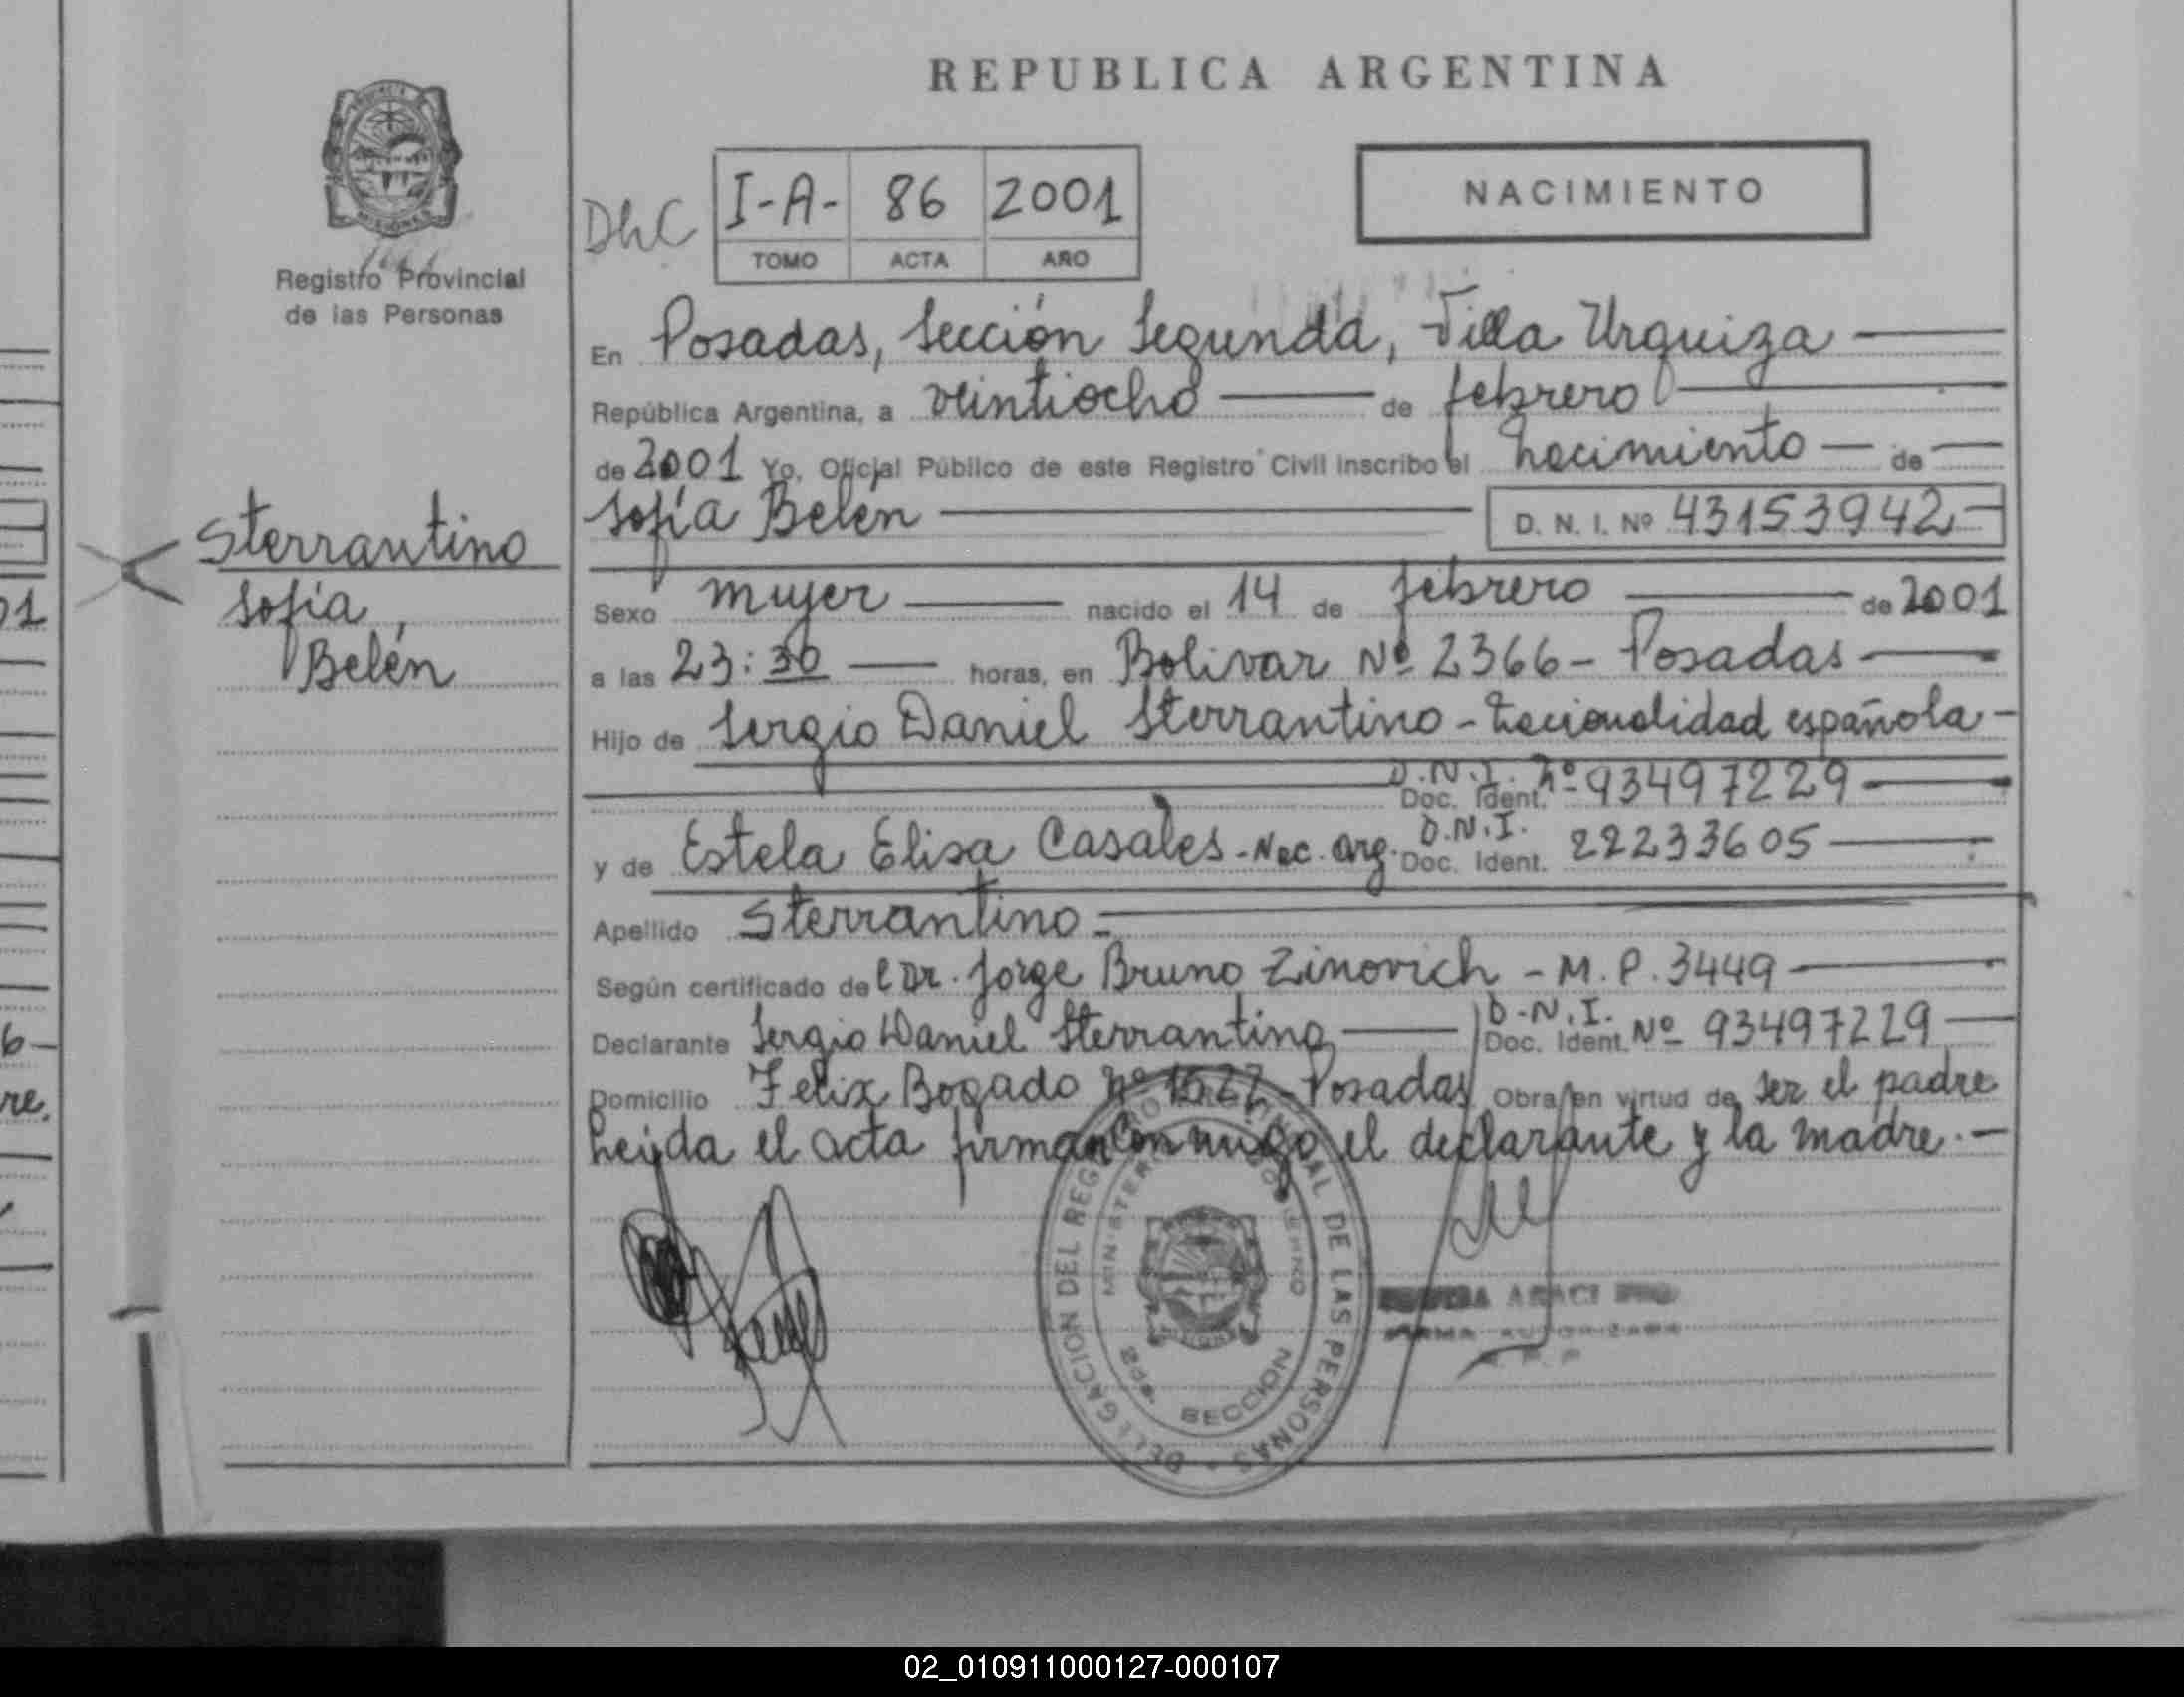 REPUBLICA ARGENTINA
NACIMIENTO
DhC
I-A- 86 2001
TOMO ACTA AÑO
Registro Provincial
de las Personas
Sterrantino
Sofía,
Belén
En Posadas, Sección Segunda, Villa Urquiza
República Argentina, a veintiocho de febrero
de 2001 Yo, Oficial Público de este Registro Civil inscribo el nacimiento de
Sofía Belén D. N. I. Nº 43153942
Sexo mujer nacido el 14 de febrero de 2001
a las 23:30 horas, en Bolivar Nº 2366 - Posadas
Hijo de Sergio Daniel Sterrantino - nacionalidad española -
D.N.I. Doc. Ident. nº 93497229
y de Estela Elisa Casales - Nac. Arg. D.N.I. Doc. Ident. 22233605
Apellido Sterrantino
Según certificado del Dr. Jorge Bruno Zinovich - M.P. 3449
Declarante Sergio Daniel Sterrantino D.N.I. Doc. Ident. Nº 93497229
Domicilio Felix Bogado nº 1527 - Posadas Obra en virtud de ser el padre
Leída el acta firman conmigo el declarante y la madre.-
DELEGACION DEL REGISTRO PROVINCIAL DE LAS PERSONAS
MINISTERIO DE GOBIERNO
2da. SECCION
ARACI
FIRMA AUTORIZADA
R. P. P.
01
6-
re.
02_010911000127-000107